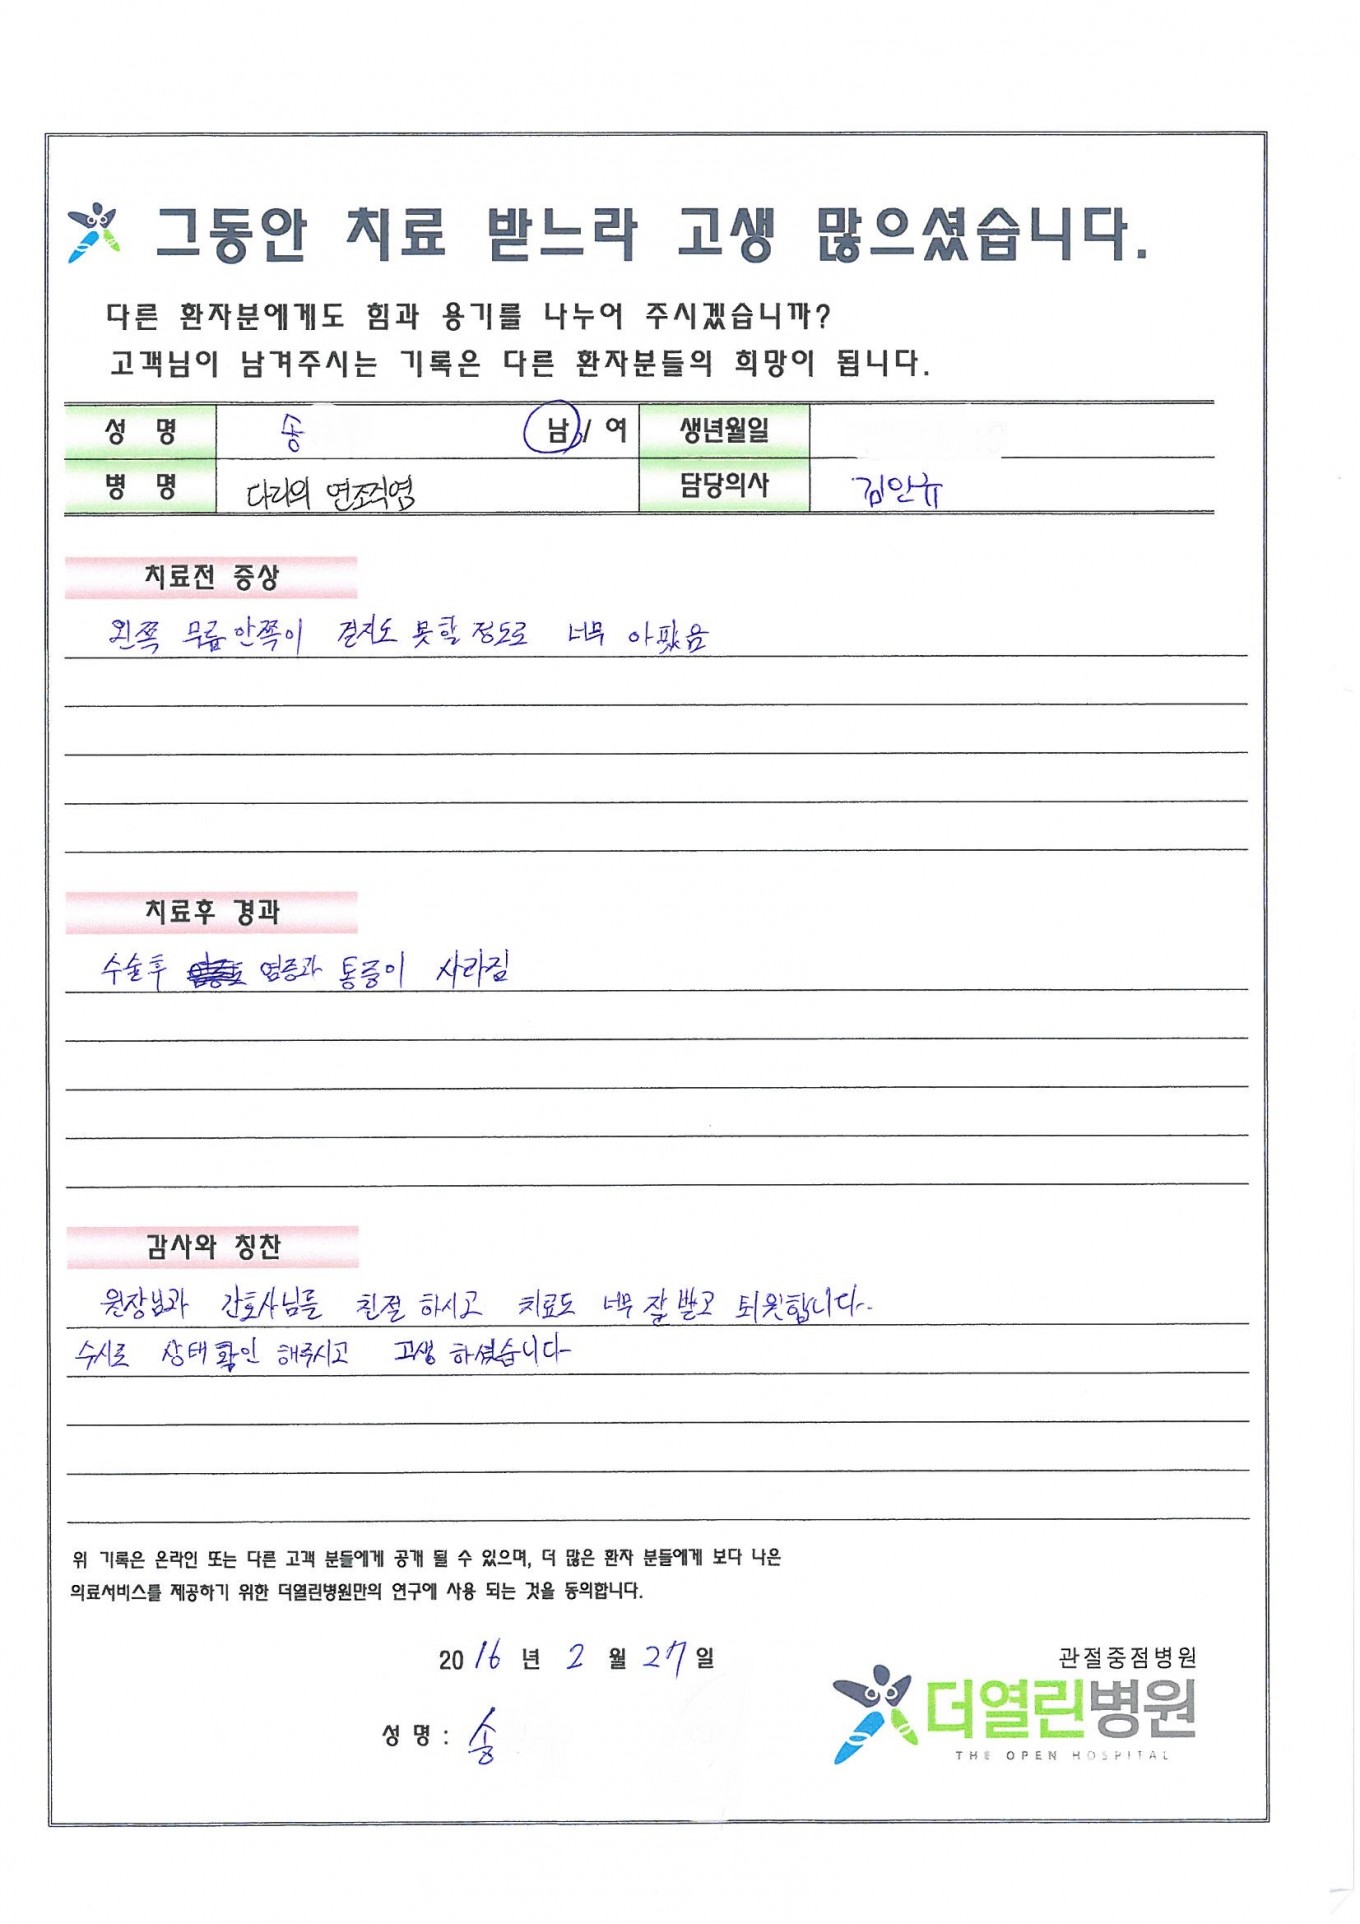 그동안 치료 받느라 고생 많으셨습니다.
다른 환자분에게도 힘과 용기를 나누어 주시겠습니까?
고객님이 남겨주시는 기록은 다른 환자분들의 희망이 됩니다.
성 명 송 남 / 여 생년월일
병 명 다리의 연조직염 담당의사 김안규
치료전 증상
왼쪽 무릎 안쪽이 걷지도 못할 정도로 너무 아팠음
치료후 경과
수술후 염증과 통증이 사라짐
감사와 칭찬
원장님과 간호사님들 친절 하시고 치료도 너무 잘 받고 퇴원합니다.
수시로 상태 확인 해주시고 고생 하셨습니다
위 기록은 온라인 또는 다른 고객 분들에게 공개 될 수 있으며, 더 많은 환자 분들에게 보다 나은
의료서비스를 제공하기 위한 더열린병원만의 연구에 사용 되는 것을 동의합니다.
2016 년 2 월 27 일
성 명 : 송
관절중점병원
더열린병원
THE OPEN HOSPITAL